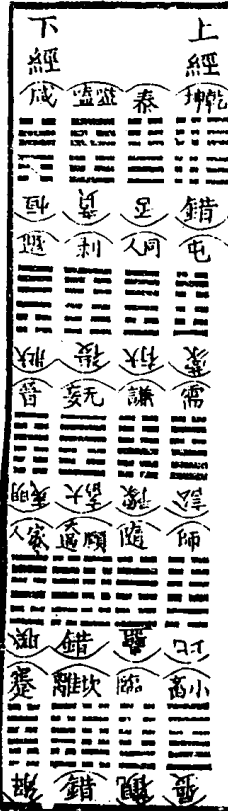 上經
乾坤
錯
屯
蒙
需
訟
師
比
小畜
履
泰
否
同人
大有
謙
豫
隨
蠱
臨
觀
噬嗑
賁
剝
復
无妄
大畜
頤過
錯
坎離
錯
下經
咸
恒
遯
壯
晉
明夷
家人
睽
蹇
解